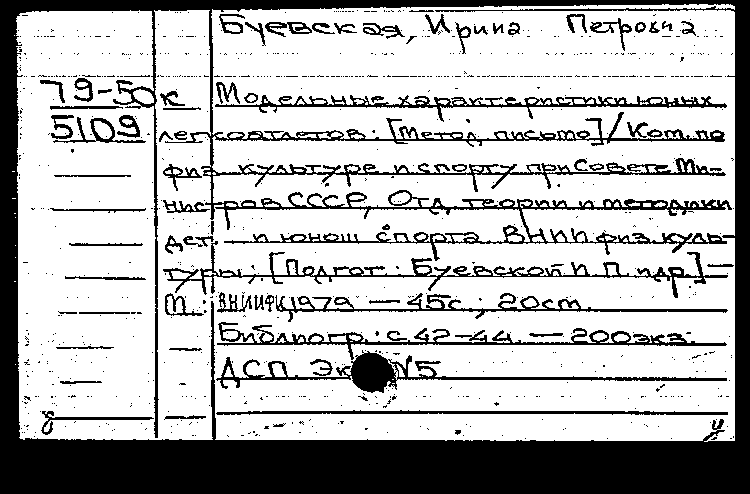 Буевская, Ирина Петровна
79-50к Модельные характеристики юных
5109 легкоатлетов: [Метод. письмо] / Ком. по
физ. культуре и спорту при Совете Ми-
нистров СССР, Отд. теории и методики
дет. и юнош. спорта ВНИИ физ. куль-
туры; [Подгот.: Буевской И. П. и др.] —
М.: ВНИИФК, 1979 — 45с.; 20см.
Библиогр.: с. 42-44. — 200экз.
ДСП. Эк №5